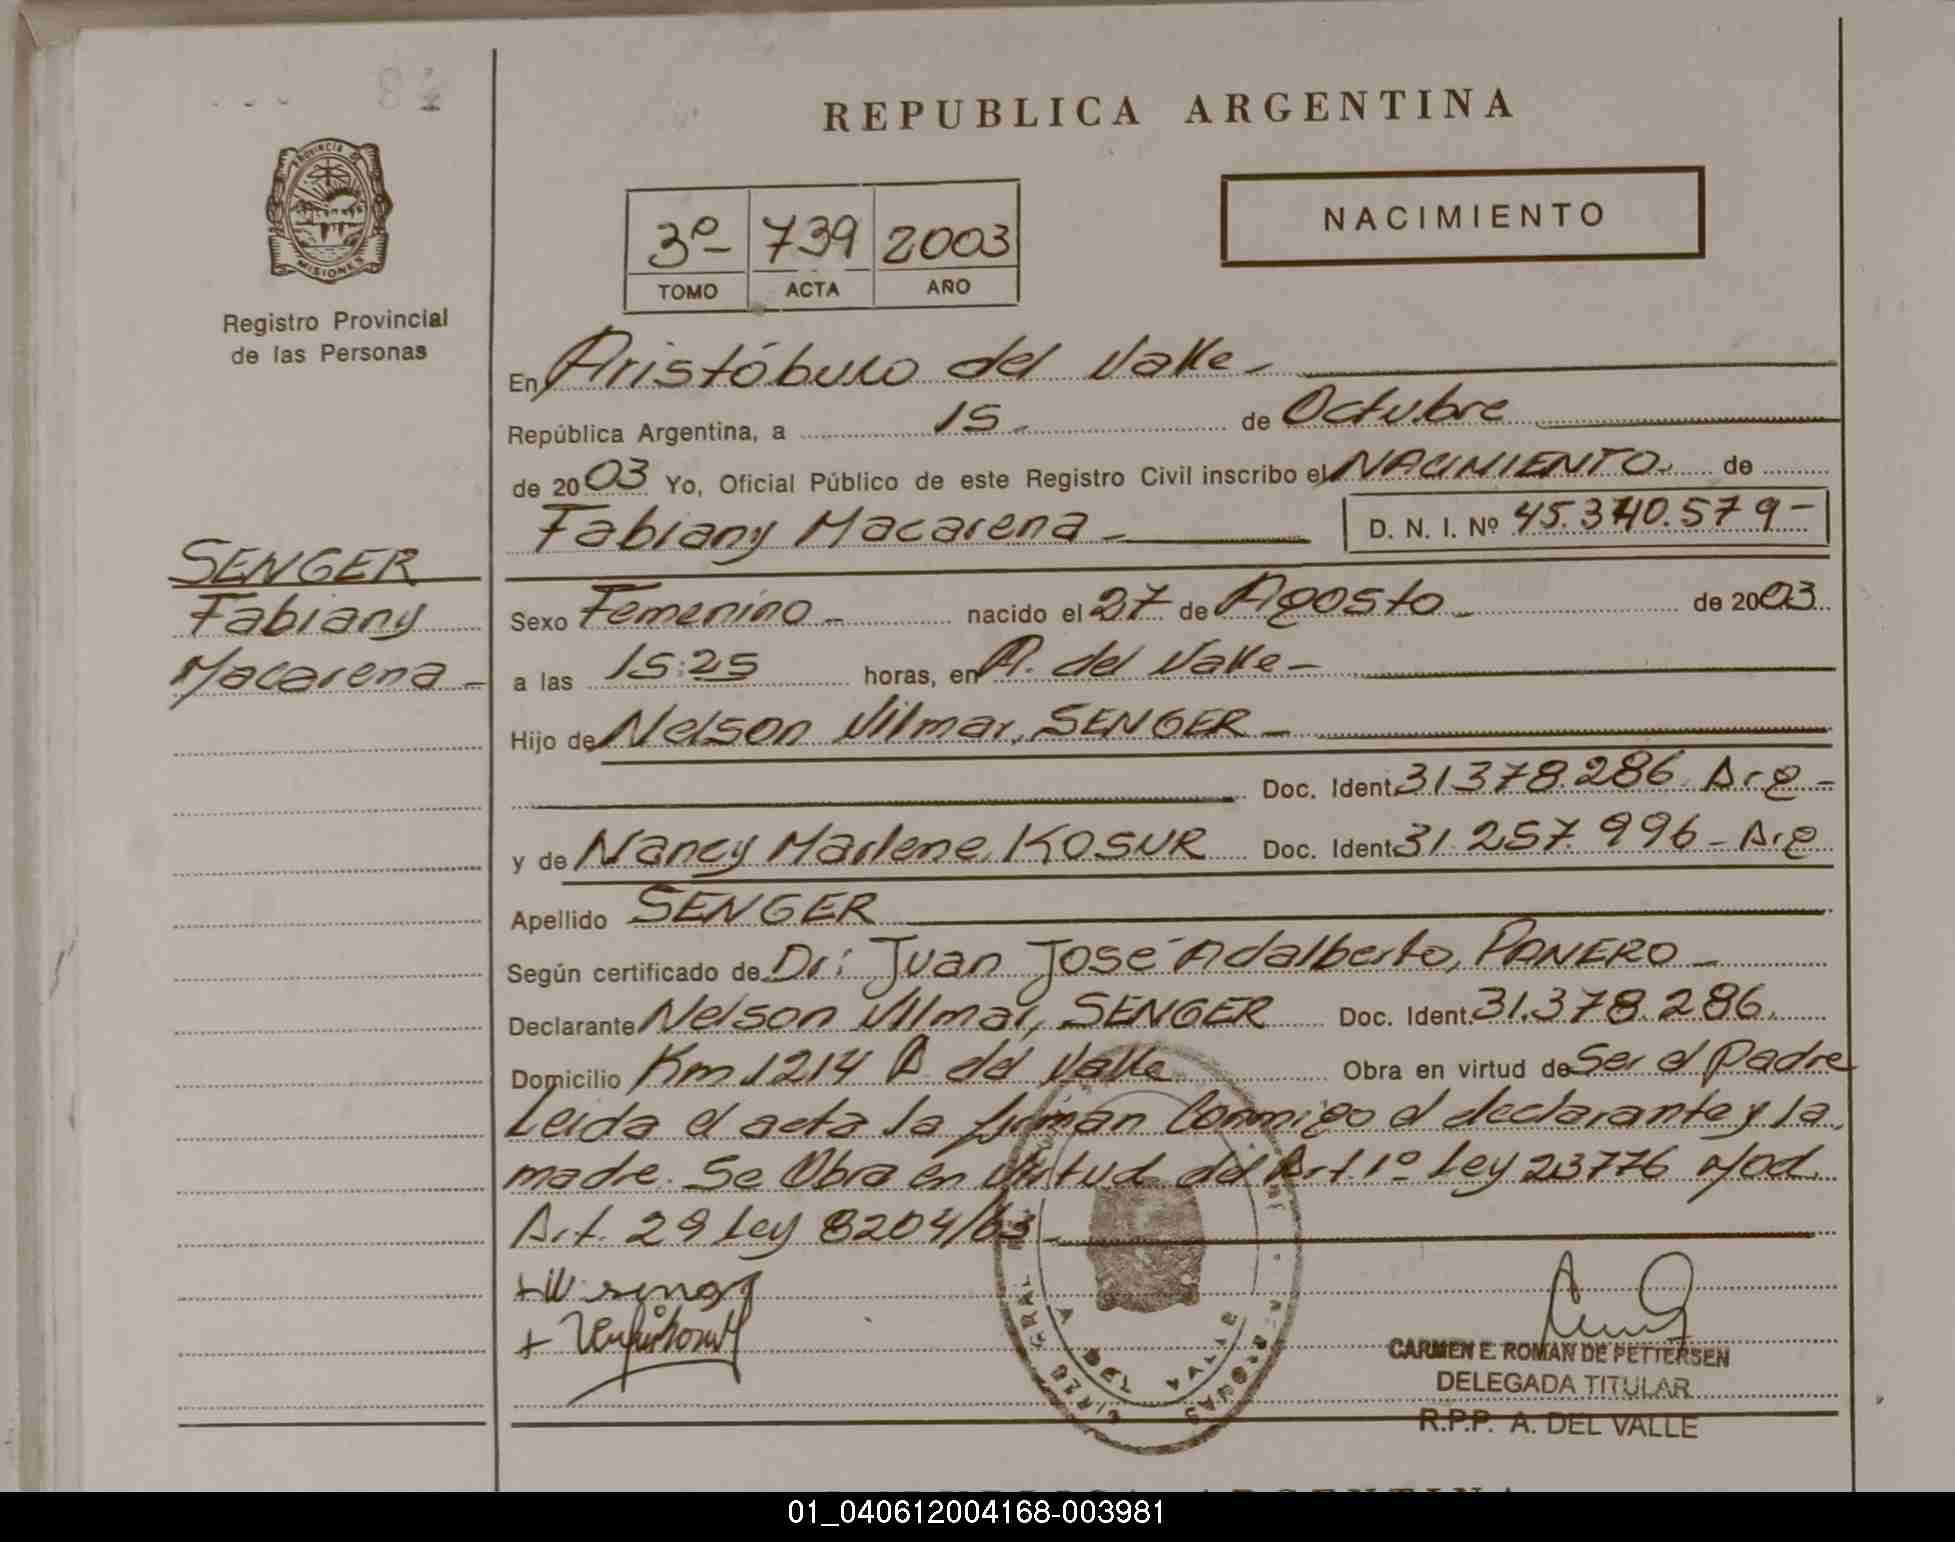 REPUBLICA ARGENTINA
PROVINCIA DE
MISIONES
Registro Provincial
de las Personas
3º 739 2003
TOMO ACTA AÑO
NACIMIENTO
En Aristóbulo del Valle
República Argentina, a 15 de Octubre
de 2003 Yo, Oficial Público de este Registro Civil inscribo el NACIMIENTO de
Fabiany Macarena D. N. I. Nº 45.340.579-
SENGER
Fabiany
Macarena
Sexo Femenino nacido el 27 de Agosto de 2003
a las 15:25 horas, en A. del Valle
Hijo de Nelson Vilmar, SENGER
Doc. Ident. 31.378.286 Arg
y de Nancy Marlene, KOSUR Doc. Ident. 31.257.996 - Arg
Apellido SENGER
Según certificado de Dr: Juan José Adalberto, PANERO
Declarante Nelson Vilmar, SENGER Doc. Ident. 31.378.286
Domicilio Km 1214 A del Valle Obra en virtud de Ser el Padre
Leida el acta la firman Conmigo el declarante y la
madre. Se Obra en Virtud del Art. 1º Ley 23776 Mod.
Art. 29 Ley 8204/63
CARMEN E. ROMAN DE PETTERSEN
DELEGADA TITULAR
R.P.P. A. DEL VALLE
01_040612004168-003981